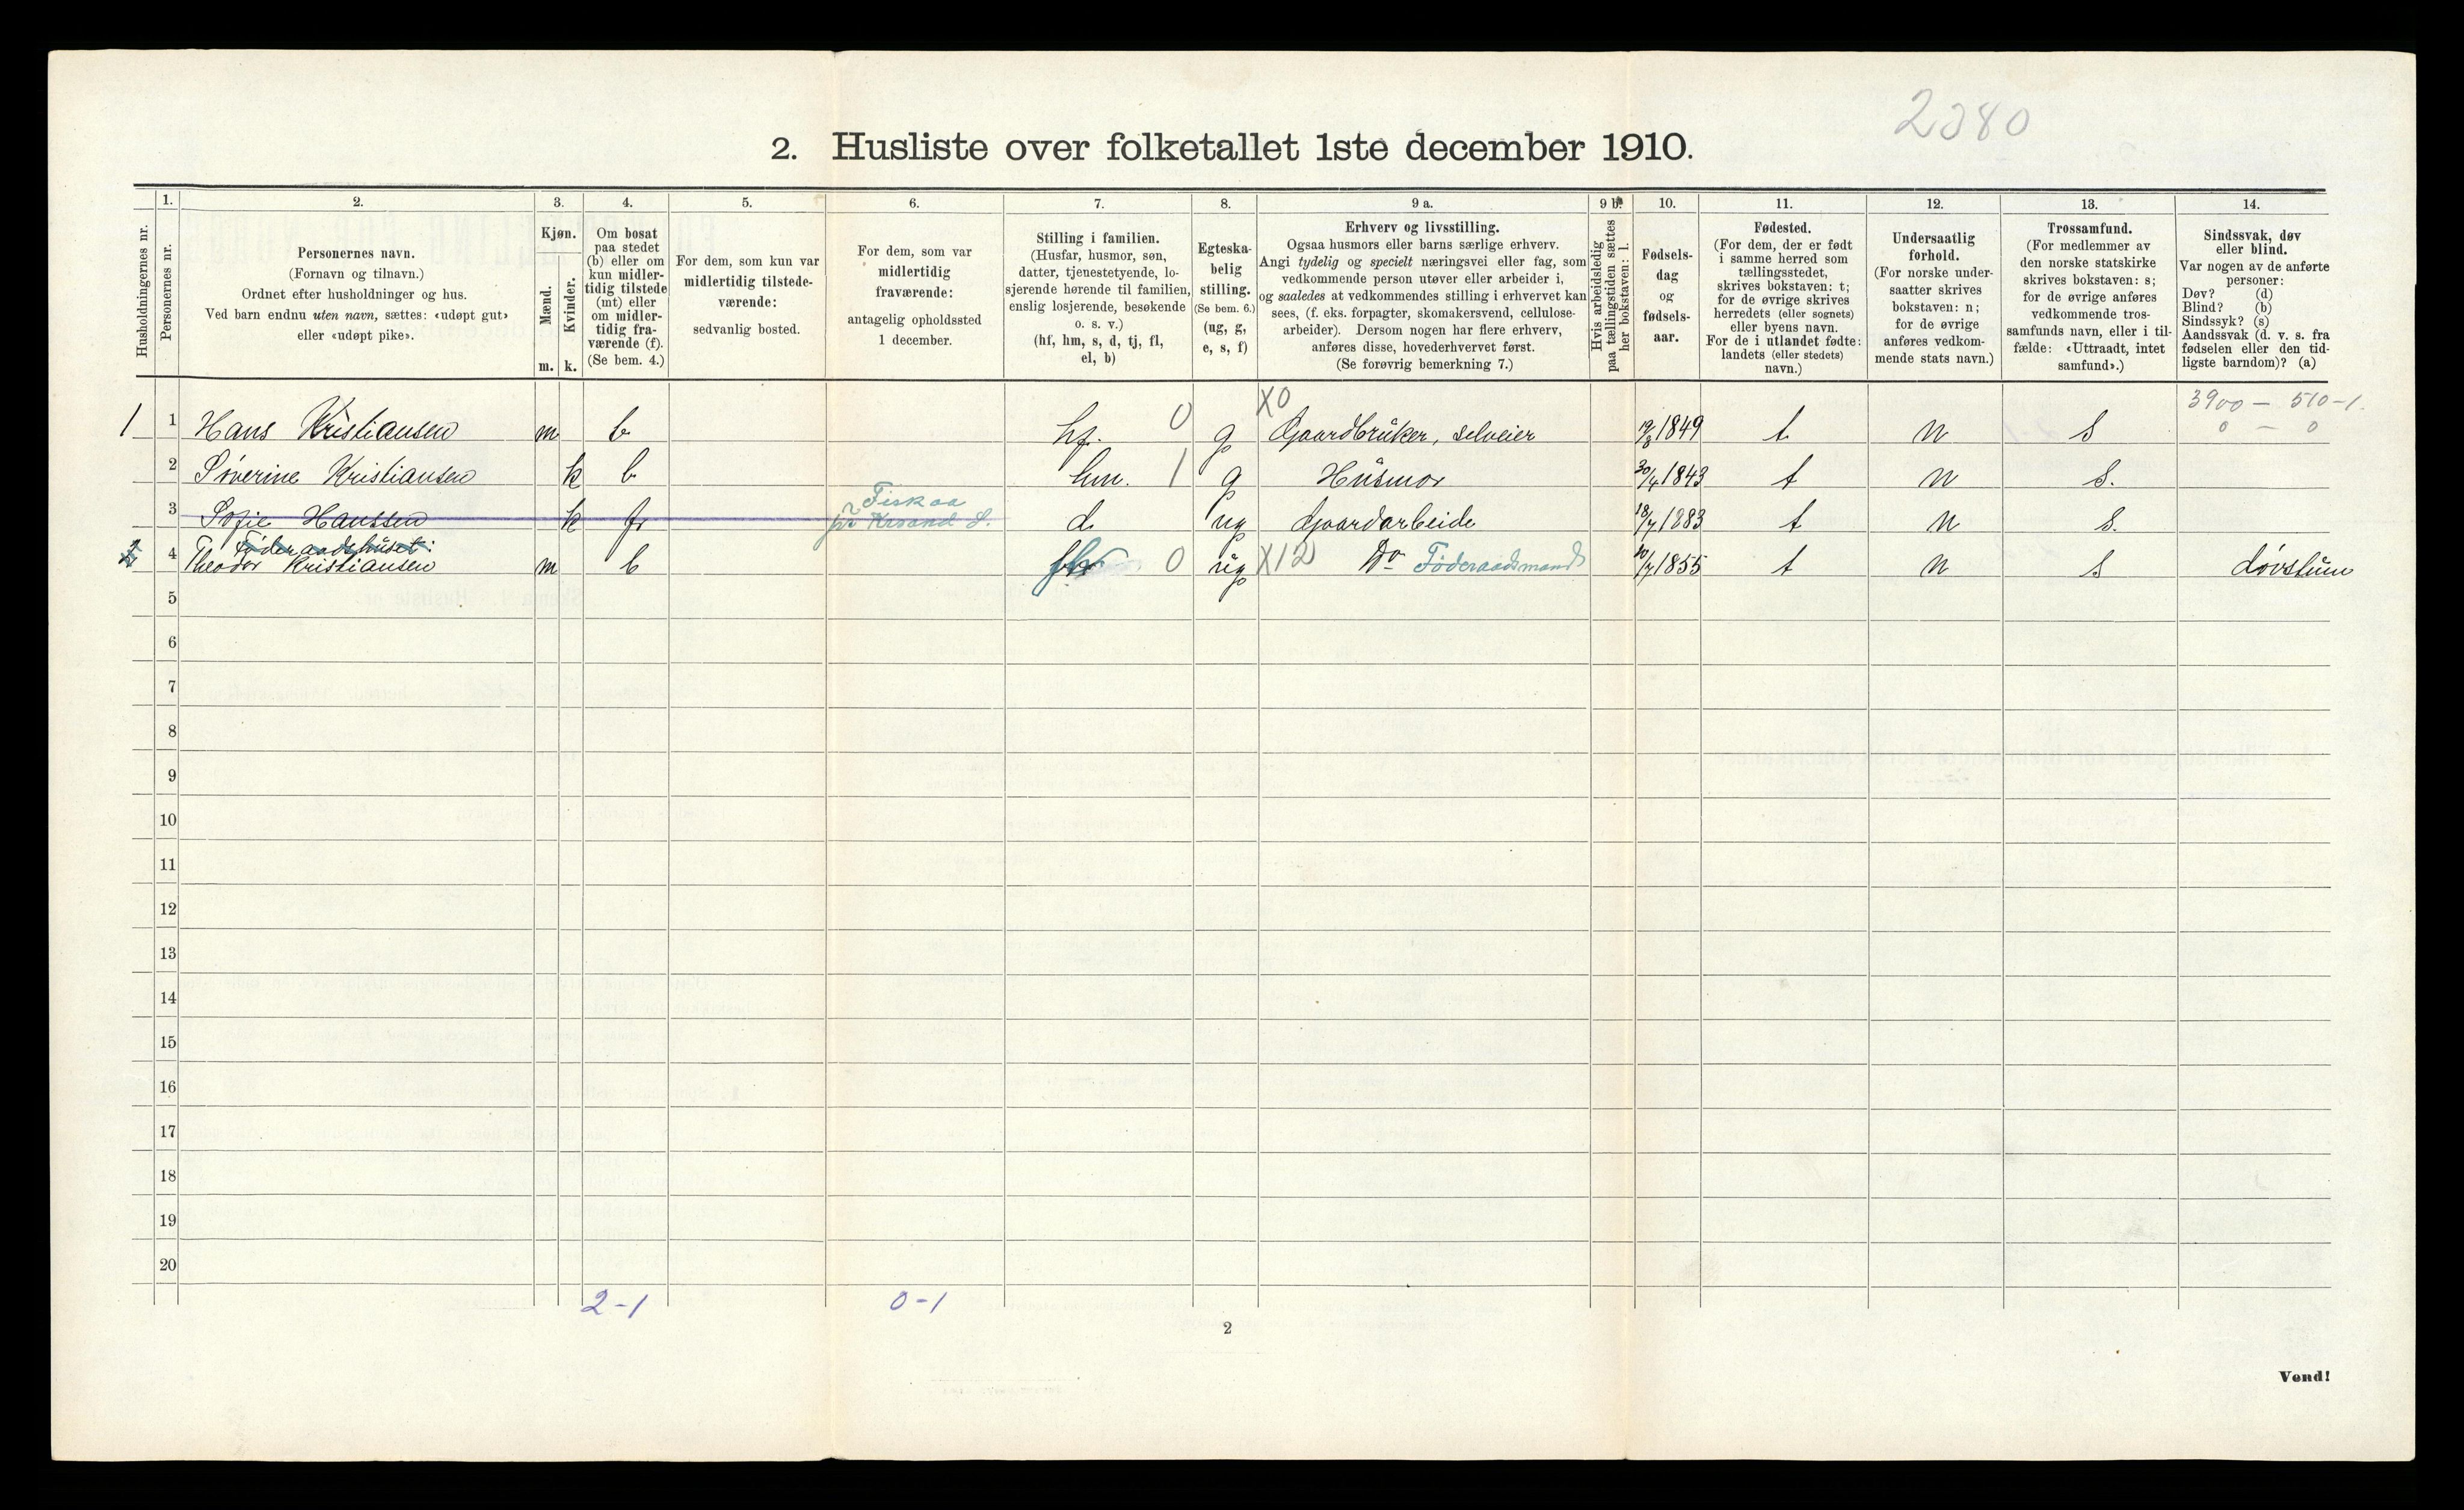 2380
2. Husliste over folketallet 1ste december 1910.
Husholdningernes nr.
1.
Personernes nr.
2.
Personernes navn.
(Fornavn og tilnavn.)
Ordnet efter husholdninger og hus.
Ved barn endnu uten navn, sættes: «udøpt gut»
eller «udøpt pike».
3.
Kjøn.
Mænd.
Kvinder.
m. k.
4.
Om bosat
paa stedet
(b) eller om
kun midler-
tidig tilstede
(mt) eller
om midler-
tidig fra-
værende (f).
(Se bem. 4.)
5.
For dem, som kun var
midlertidig tilstede-
værende:
sedvanlig bosted.
6.
For dem, som var
midlertidig
fraværende:
antagelig opholdssted
1 december.
7.
Stilling i familien.
(Husfar, husmor, søn,
datter, tjenestetyende, lo-
sjerende hørende til familien,
enslig losjerende, besøkende
o. s. v.)
(hf, hm, s, d, tj, fl,
el, b)
8.
Egteska-
belig
stilling.
(Se bem. 6.)
(ug, g,
e, s, f)
9 a.
Erhverv og livsstilling.
Ogsaa husmors eller barns særlige erhverv.
Angi tydelig og specielt næringsvei eller fag, som
vedkommende person utøver eller arbeider i,
og saaledes at vedkommendes stilling i erhvervet kan
sees, (f. eks. forpagter, skomakersvend, cellulose-
arbeider). Dersom nogen har flere erhverv,
anføres disse, hovederhvervet først.
(Se forøvrig bemerkning 7.)
9 b.
Hvis arbeidsledig
paa tællingstiden sættes
her bokstaven: l.
10.
Fødsels-
dag
og
fødsels-
aar.
11.
Fødested.
(For dem, der er født
i samme herred som
tællingsstedet,
skrives bokstaven: t;
for de øvrige skrives
herredets (eller sognets)
eller byens navn.
For de i utlandet fødte:
landets (eller stedets)
navn.)
12.
Undersaatlig
forhold.
(For norske under-
saatter skrives
bokstaven: n;
for de øvrige
anføres vedkom-
mende stats navn.)
13.
Trossamfund.
(For medlemmer av
den norske statskirke
skrives bokstaven: s;
for de øvrige anføres
vedkommende tros-
samfunds navn, eller i til-
fælde: «Uttraadt, intet
samfund».)
14.
Sindssvak, døv
eller blind.
Var nogen av de anførte
personer:
Døv? (d)
Blind? (b)
Sindssyk? (s)
Aandssvak (d. v. s. fra
fødselen eller den tid-
ligste barndom)? (a)
X0 3900 - 510-1.
0 - 0
1 1 Hans Kristiansen m b hf. 0 g Gaardbruker, selveier 19/8 1849 t n s
2 Søverine Kristiansen k b hm. 1 g Husmor 30/4 1843 t n s.
Fiskaa
3 Sofie Hanssen k fr pr Krsand S. d. ug Gaardarbeide 18/7 1883 t n s.
Føderaadshuset:
4 Theodor Kristiansen m b 0 ug X12 Do Føderaadsmand 1855 t n s døvstum
5
6
7
8
9
10
11
12
13
14
15
16
17
18
19
20
2-1 0-1
2
Vend!